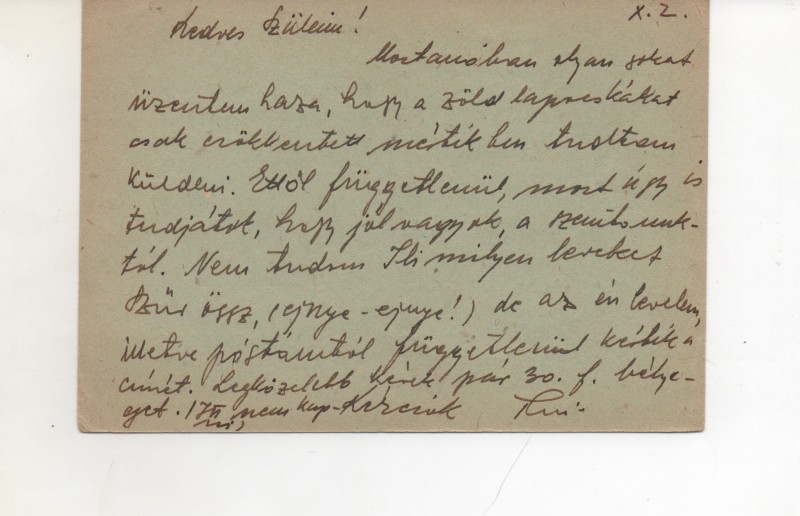 X. 2.
Kedves Szüleim!
Mostanában olyan sokat
üzentem haza, hogy a zöld lapocskákat
csak csökkentett mértékben tudtam
küldeni. Ettől függetlenül, most úgy is
tudjátok, hogy jól vagyok, a szemtanuk-
tól. Nem tudom Ili milyen leveleket
szűr össz, (ejnye-ejnye!) de az én levelem,
illetve póstámtól függetlenül kérik a
címét. Legközelebb kérek pár 30. f. bélye-
get. nem kap- Kézcsók